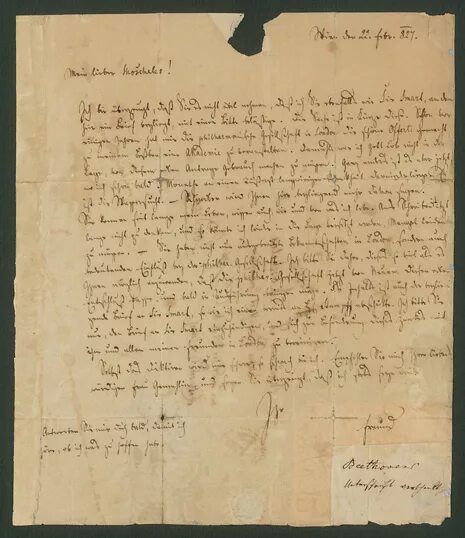 Wien den 22. Febr. 827.
Mein lieber Moscheles!
Ich bin überzeugt, daß Sie es nicht übel nehmen, daß ich Sie ebenfalls wie Sir Smart, an den
hier ein Brief beyliegt, mit einer Bitte belästige. Die Sache ist in Kürze diese. Schon vor
einigen Jahren hat mir die philharmonische Gesellschaft in London die schöne Offerte gemacht
zu meinem Besten eine Akademie zu veranstalten. Damahls war ich gott Lob nicht in der
Lage, von diesem Antrage Gebrauch machen zu müssen. Ganz anders ist es aber jetzt
wo ich schon bald 3 Monathe an einer äußerst langwierigen Krankheit darniederliege
ist die Wassersucht. – Schindler wird Ihnen hier beyliegend mehr davon sagen.
Sie kennen seit lange mein Leben, wissen auch, wie und von was ich lebe. Ans Schreiben ist
lange nicht zu denken, und so könnte ich leider in die Lage versetzt werden Mangel leiden
zu müssen. – Sie haben nicht nur ausgebreitete Bekanntschaften in London, sondern auch
bedeutenden Einfluß bey der philharm. Gesellschaft. Ich bitte Sie daher, dieses so viel als es
Ihnen möglich anzuwenden, daß die philharm. Gesellschaft jetzt von Neuem diesen edlen
Entschluß fassen und bald in Ausführung bringen möge.
Brief an Sir Smart, so wie ich einen
Ich bitte Sie
den Brief an Sir Smart einzuhändigen, und sich zur Beförderung dieses Zweckes mit
ihm und allen meinen Freunden in London zu vereinigen.
Selbst das Diktiren wird mir schwer so schwach bin ich. Empfehlen Sie mich Ihrer liebens
würdigen Frau Gemahlinn und seyen Sie überzeugt, daß ich stets seyn werde
Ihr
Freund
Antworten Sie mir doch bald, damit ich
höre, ob ich was zu hoffen habe.
Beethovens
Unterschrift verschenkt